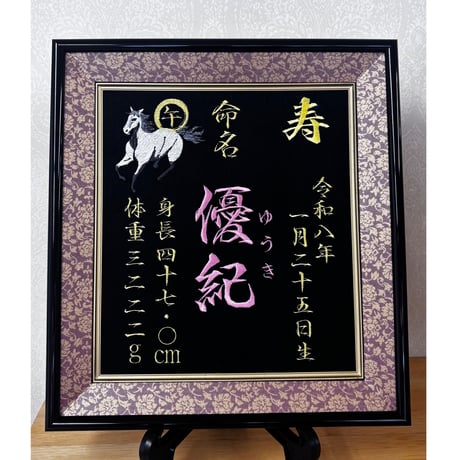 寿
令和八年
一月二十五日生
命名
優紀
ゆうき
午
身長四十七・〇cm
体重三二二二g